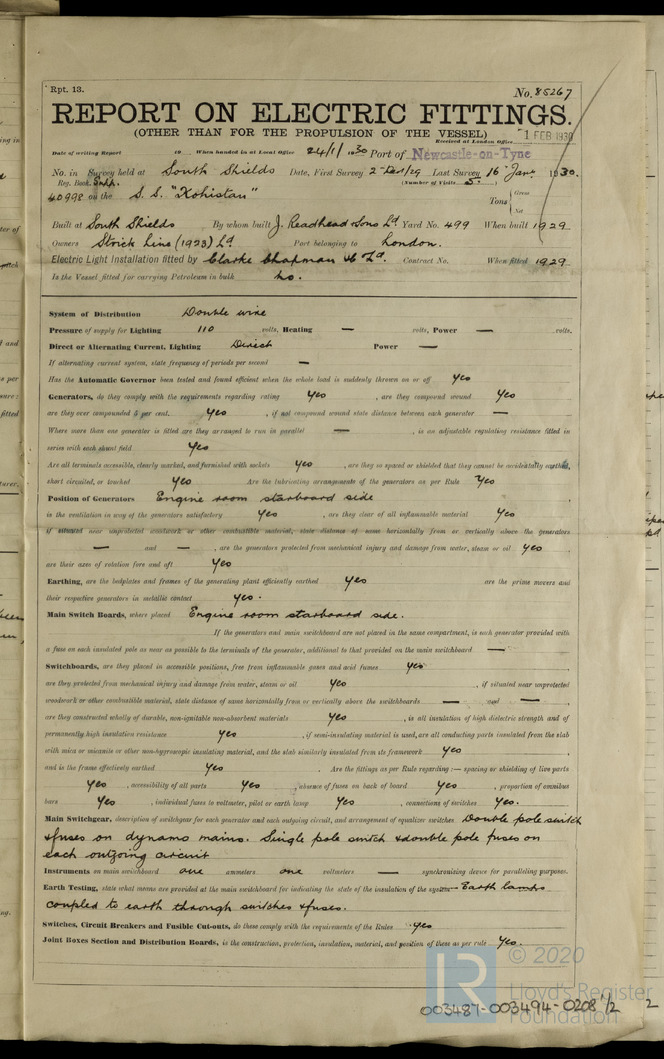 Rpt. 13.
No. 85267
REPORT ON ELECTRIC FITTINGS.
(OTHER THAN FOR THE PROPULSION OF THE VESSEL)
Received at London Office 1 FEB 1930
Date of writing Report 19 When handed in at Local Office 24/1/1930 Port of Newcastle-on-Tyne
No. in Survey held at South Shields Date, First Survey 2 Last Survey 16 Jany 1930.
Reg. Book. (Number of Visits 5.)
40998 on the S. S. "Kohistan" Tons { Gross
Net
Built at South Shields By whom built J. Readhead & Sons Ld Yard No. 499 When built 1929
Owners Strick Line (1923) Ld. Port belonging to London.
Electric Light Installation fitted by Clarke Chapman & Co Ld. Contract No. When fitted 1929
Is the Vessel fitted for carrying Petroleum in bulk no.
System of Distribution Double wire
Pressure of supply for Lighting 110 volts, Heating — volts, Power — volts.
Direct or Alternating Current, Lighting Direct Power —
If alternating current system, state frequency of periods per second —
Has the Automatic Governor been tested and found efficient when the whole load is suddenly thrown on or off Yes
Generators, do they comply with the requirements regarding rating Yes, are they compound wound Yes
are they over compounded 5 per cent. Yes, if not compound wound state distance between each generator —
Where more than one generator is fitted are they arranged to run in parallel —, is an adjustable regulating resistance fitted in
series with each shunt field Yes
Are all terminals accessible, clearly marked, and furnished with sockets Yes, are they so spaced or shielded that they cannot be accidentally earthed,
short circuited, or touched Yes Are the lubricating arrangements of the generators as per Rule Yes
Position of Generators Engine room starboard side
is the ventilation in way of the generators satisfactory Yes, are they clear of all inflammable material Yes
if situated near unprotected woodwork or other combustible material, state distance of same horizontally from or vertically above the generators
— and —, are the generators protected from mechanical injury and damage from water, steam or oil Yes
are their axes of rotation fore and aft Yes
Earthing, are the bedplates and frames of the generating plant efficiently earthed Yes are the prime movers and
their respective generators in metallic contact Yes.
Main Switch Boards, where placed Engine room starboard side.
If the generators and main switchboard are not placed in the same compartment, is each generator provided with
a fuse on each insulated pole as near as possible to the terminals of the generator, additional to that provided on the main switchboard —
Switchboards, are they placed in accessible positions, free from inflammable gases and acid fumes Yes
are they protected from mechanical injury and damage from water, steam or oil Yes, if situated near unprotected
woodwork or other combustible material, state distance of same horizontally from or vertically above the switchboards — and —
are they constructed wholly of durable, non-ignitable non-absorbent materials Yes, is all insulation of high dielectric strength and of
permanently high insulation resistance Yes, if semi-insulating material is used, are all conducting parts insulated from the slab
with mica or micanite or other non-hygroscopic insulating material, and the slab similarly insulated from its framework Yes
and is the frame effectively earthed Yes. Are the fittings as per Rule regarding:— spacing or shielding of live parts
Yes, accessibility of all parts Yes, absence of fuses on back of board Yes, proportion of omnibus
bars Yes, individual fuses to voltmeter, pilot or earth lamp Yes, connections of switches Yes.
Main Switchgear, description of switchgear for each generator and each outgoing circuit, and arrangement of equaliser switches Double pole switch
& fuses on dynamo mains. Single pole switch & double pole fuses on
each outgoing circuit
Instruments on main switchboard one ammeters one voltmeters — synchronising device for paralleling purposes.
Earth Testing, state what means are provided at the main switchboard for indicating the state of the insulation of the system Earth lamps
coupled to earth through switches & fuses.
Switches, Circuit Breakers and Fusible Cut-outs, do these comply with the requirements of the Rules Yes
Joint Boxes Section and Distribution Boards, is the construction, protection, insulation, material, and position of these as per rule Yes.
© 2020
LR
Lloyd's Register
Foundation
003487-003494-0208 1/2